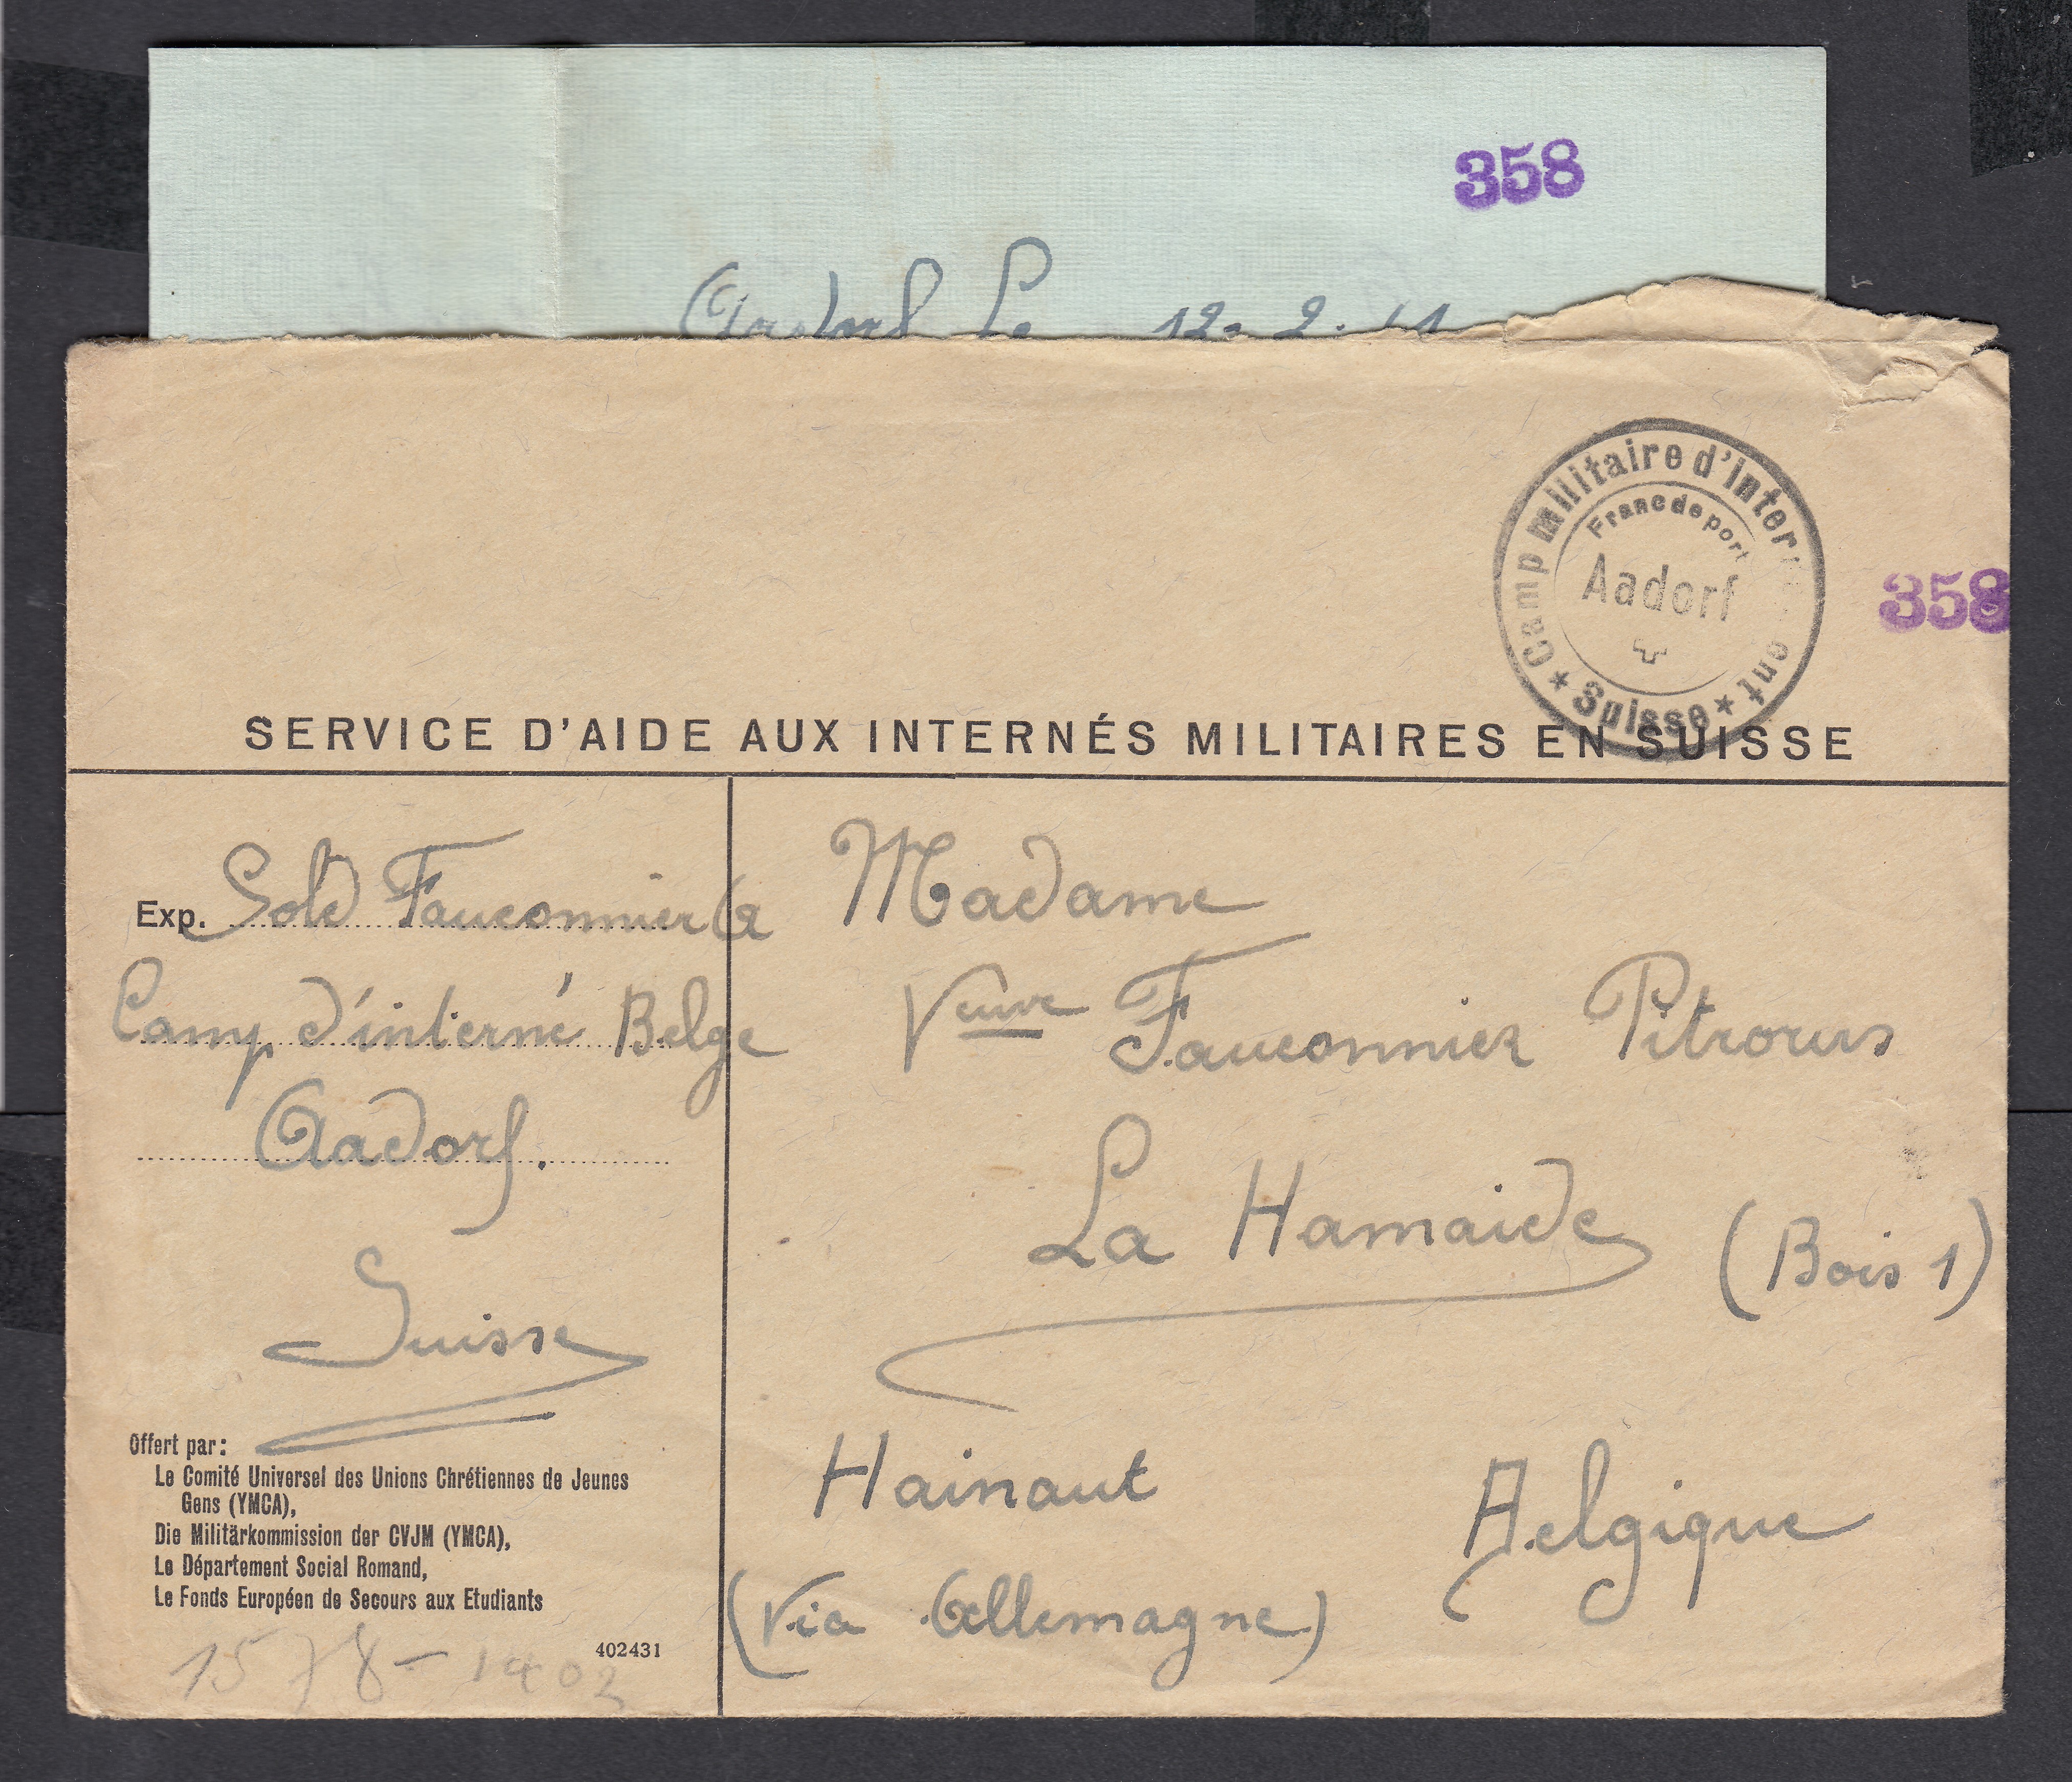 358
Aadorf Le 12-2-41
Camp militaire d'inter ent
Franc de port
Aadorf
★ Suisse ★
358
SERVICE D'AIDE AUX INTERNÉS MILITAIRES EN SUISSE
Exp. Sold Fauconnier G
Camp d'interné Belge
Aadorf.
Suisse
Madame
Veuve Fauconnier
La Hamaide (Bois 1)
Hainaut Belgique
(Via Allemagne)
Offert par:
Le Comité Universel des Unions Chrétiennes de Jeunes
Gens (YMCA),
Die Militärkommission der CVJM (YMCA),
Le Département Social Romand,
Le Fonds Européen de Secours aux Etudiants
402431
1578-1402